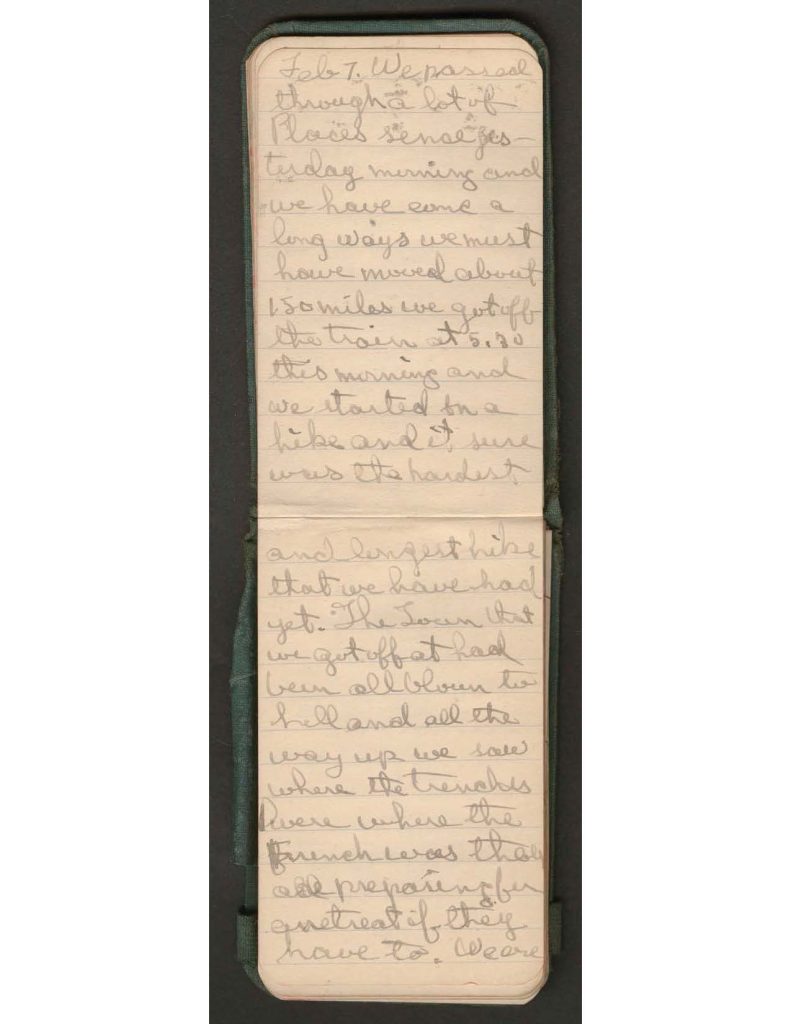 Feb 7. We passed
through a lot of
Places sence yes-
terday morning and
we have come a
long ways we must
have moved about
150 miles we got off
the train at 5.30
this morning and
we started on a
hike and it sure
was the hardest
and longest hike
that we have had
yet. The Town that
we got off at had
been all blown to
hell and all the
way up we saw
where the trenches
were where the
French was
all preparing for
retreat if they
have to. We are